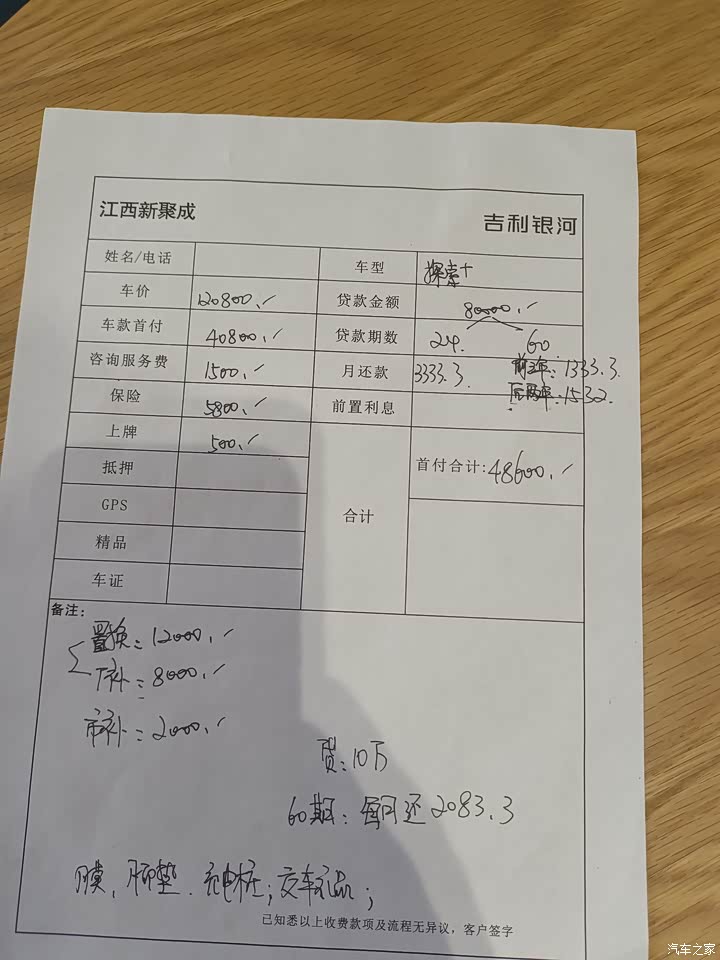 江西新聚成 吉利银河
姓名/电话 车型 探索+
车价 120800.✓ 贷款金额 80000.✓
车款首付 40800.✓ 贷款期数 24. 60
咨询服务费 1500.✓ 月还款 3333.3 前三年:1333.3.
后两年:1532.
保险 5800.✓ 前置利息
上牌 500.✓
抵押 合计 首付合计:48600.✓
GPS
精品
车证
备注:
置换:12000.✓
厂补:8000.✓
市补:2000.✓
贷:10万
60期:每月还2083.3
膜,脚垫.充电桩;交车礼品;
已知悉以上收费款项及流程无异议,客户签字
汽车之家